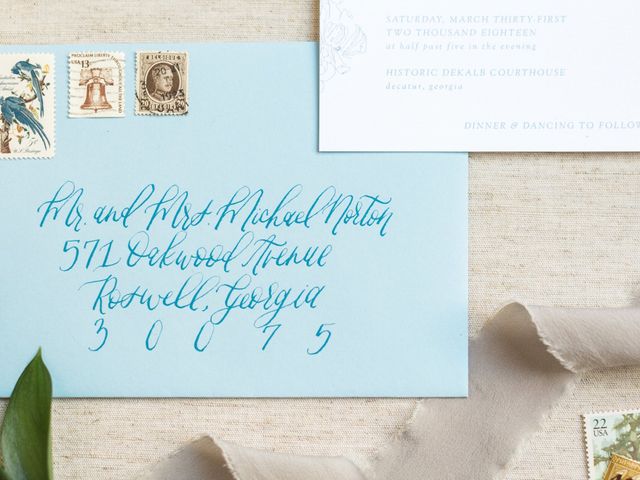 SATURDAY, MARCH THIRTY-FIRST
TWO THOUSAND EIGHTEEN
at half past five in the evening
HISTORIC DEKALB COURTHOUSE
decatur, georgia
DINNER & DANCING TO FOLLOW
USA 13
BELGIQUE
20
7c
Mr. and Mrs. Michael Norton
571 Oakwood Avenue
Roswell, Georgia
3 0 0 7 5
22
USA